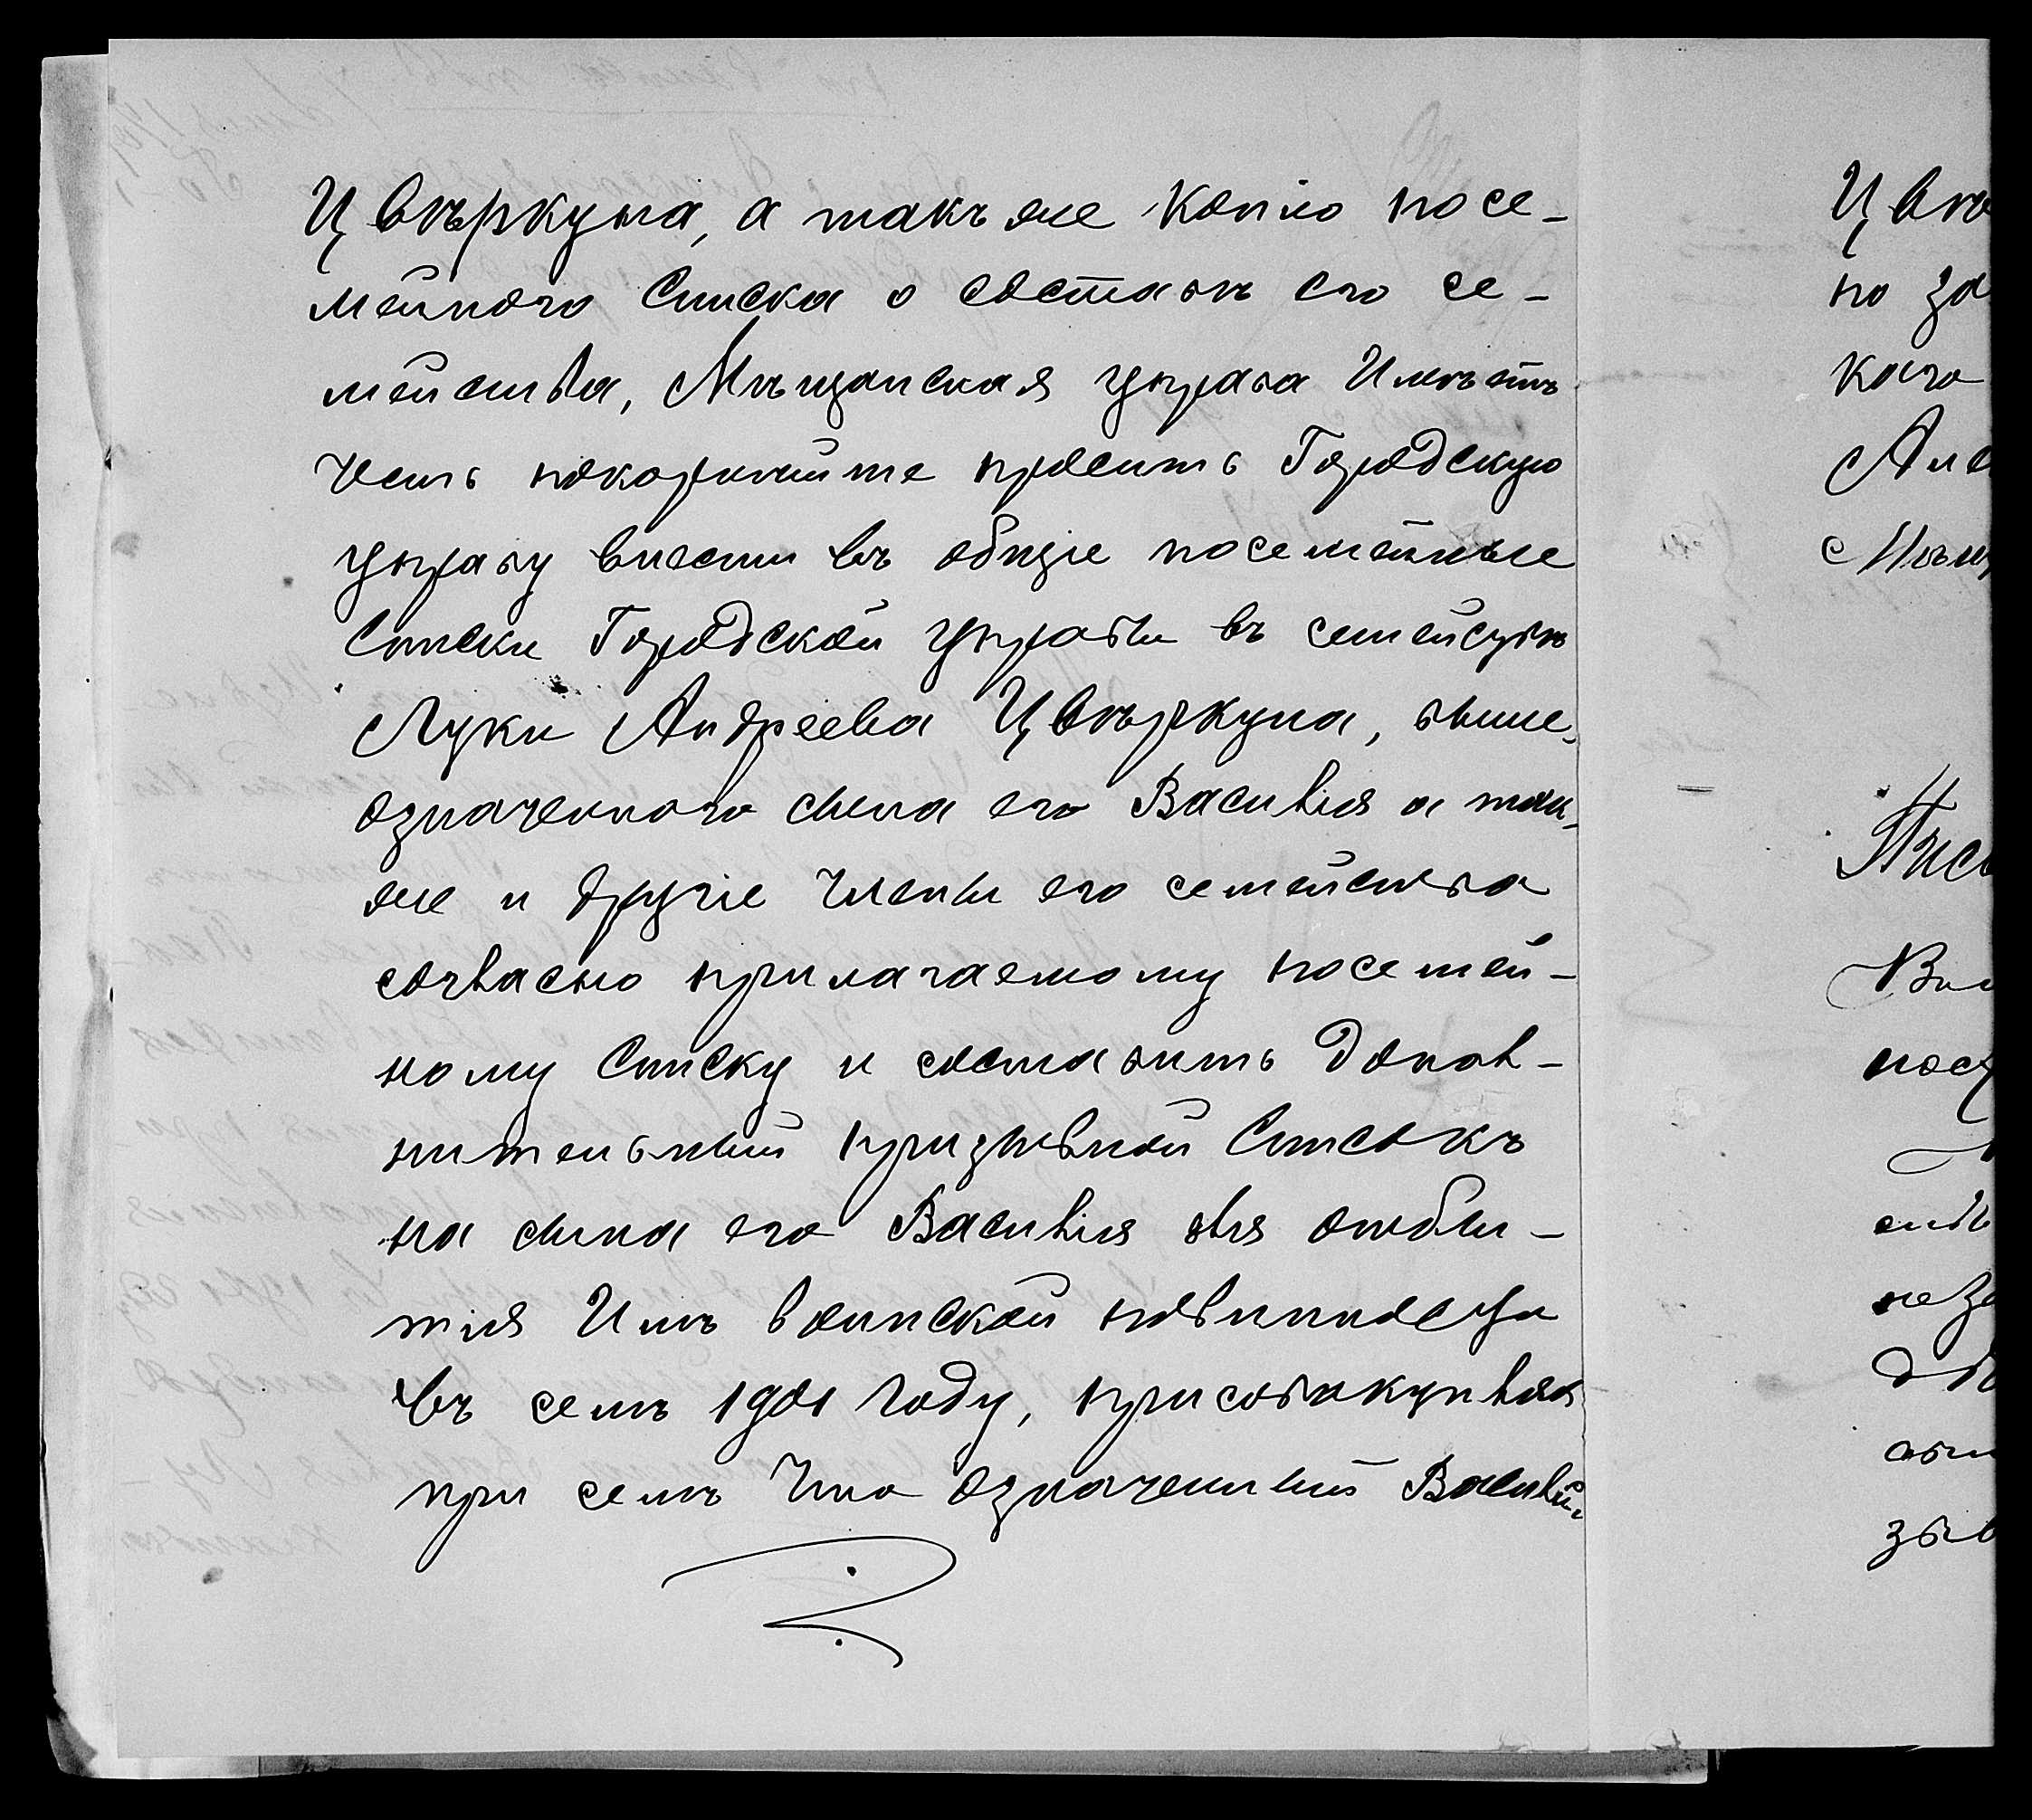 Цвѣркуна, а такъ же копію посе-
мейного списка о составѣ его се-
мейства, Мѣщанская управа Имѣетъ
честь покорнейше просить Городскую
управу внести въ общіе посемейные
Списки Городской управы въ семействѣ
Луки Андреева Цвѣркуна, выше-
означенного сына его Василія а так-
же и другіе члены его семейства
согласно прилагаемому посемей-
ному Списку и составить допол-
нительный призывной Списокъ
на сына его Василія для отбы-
тія Имъ воинской повинности
въ семъ 1901 году, присовокупляя
при семъ Что означенный Василій
Цвѣ
по за
кого
Але
Мѣщ
Вы
пос
незы